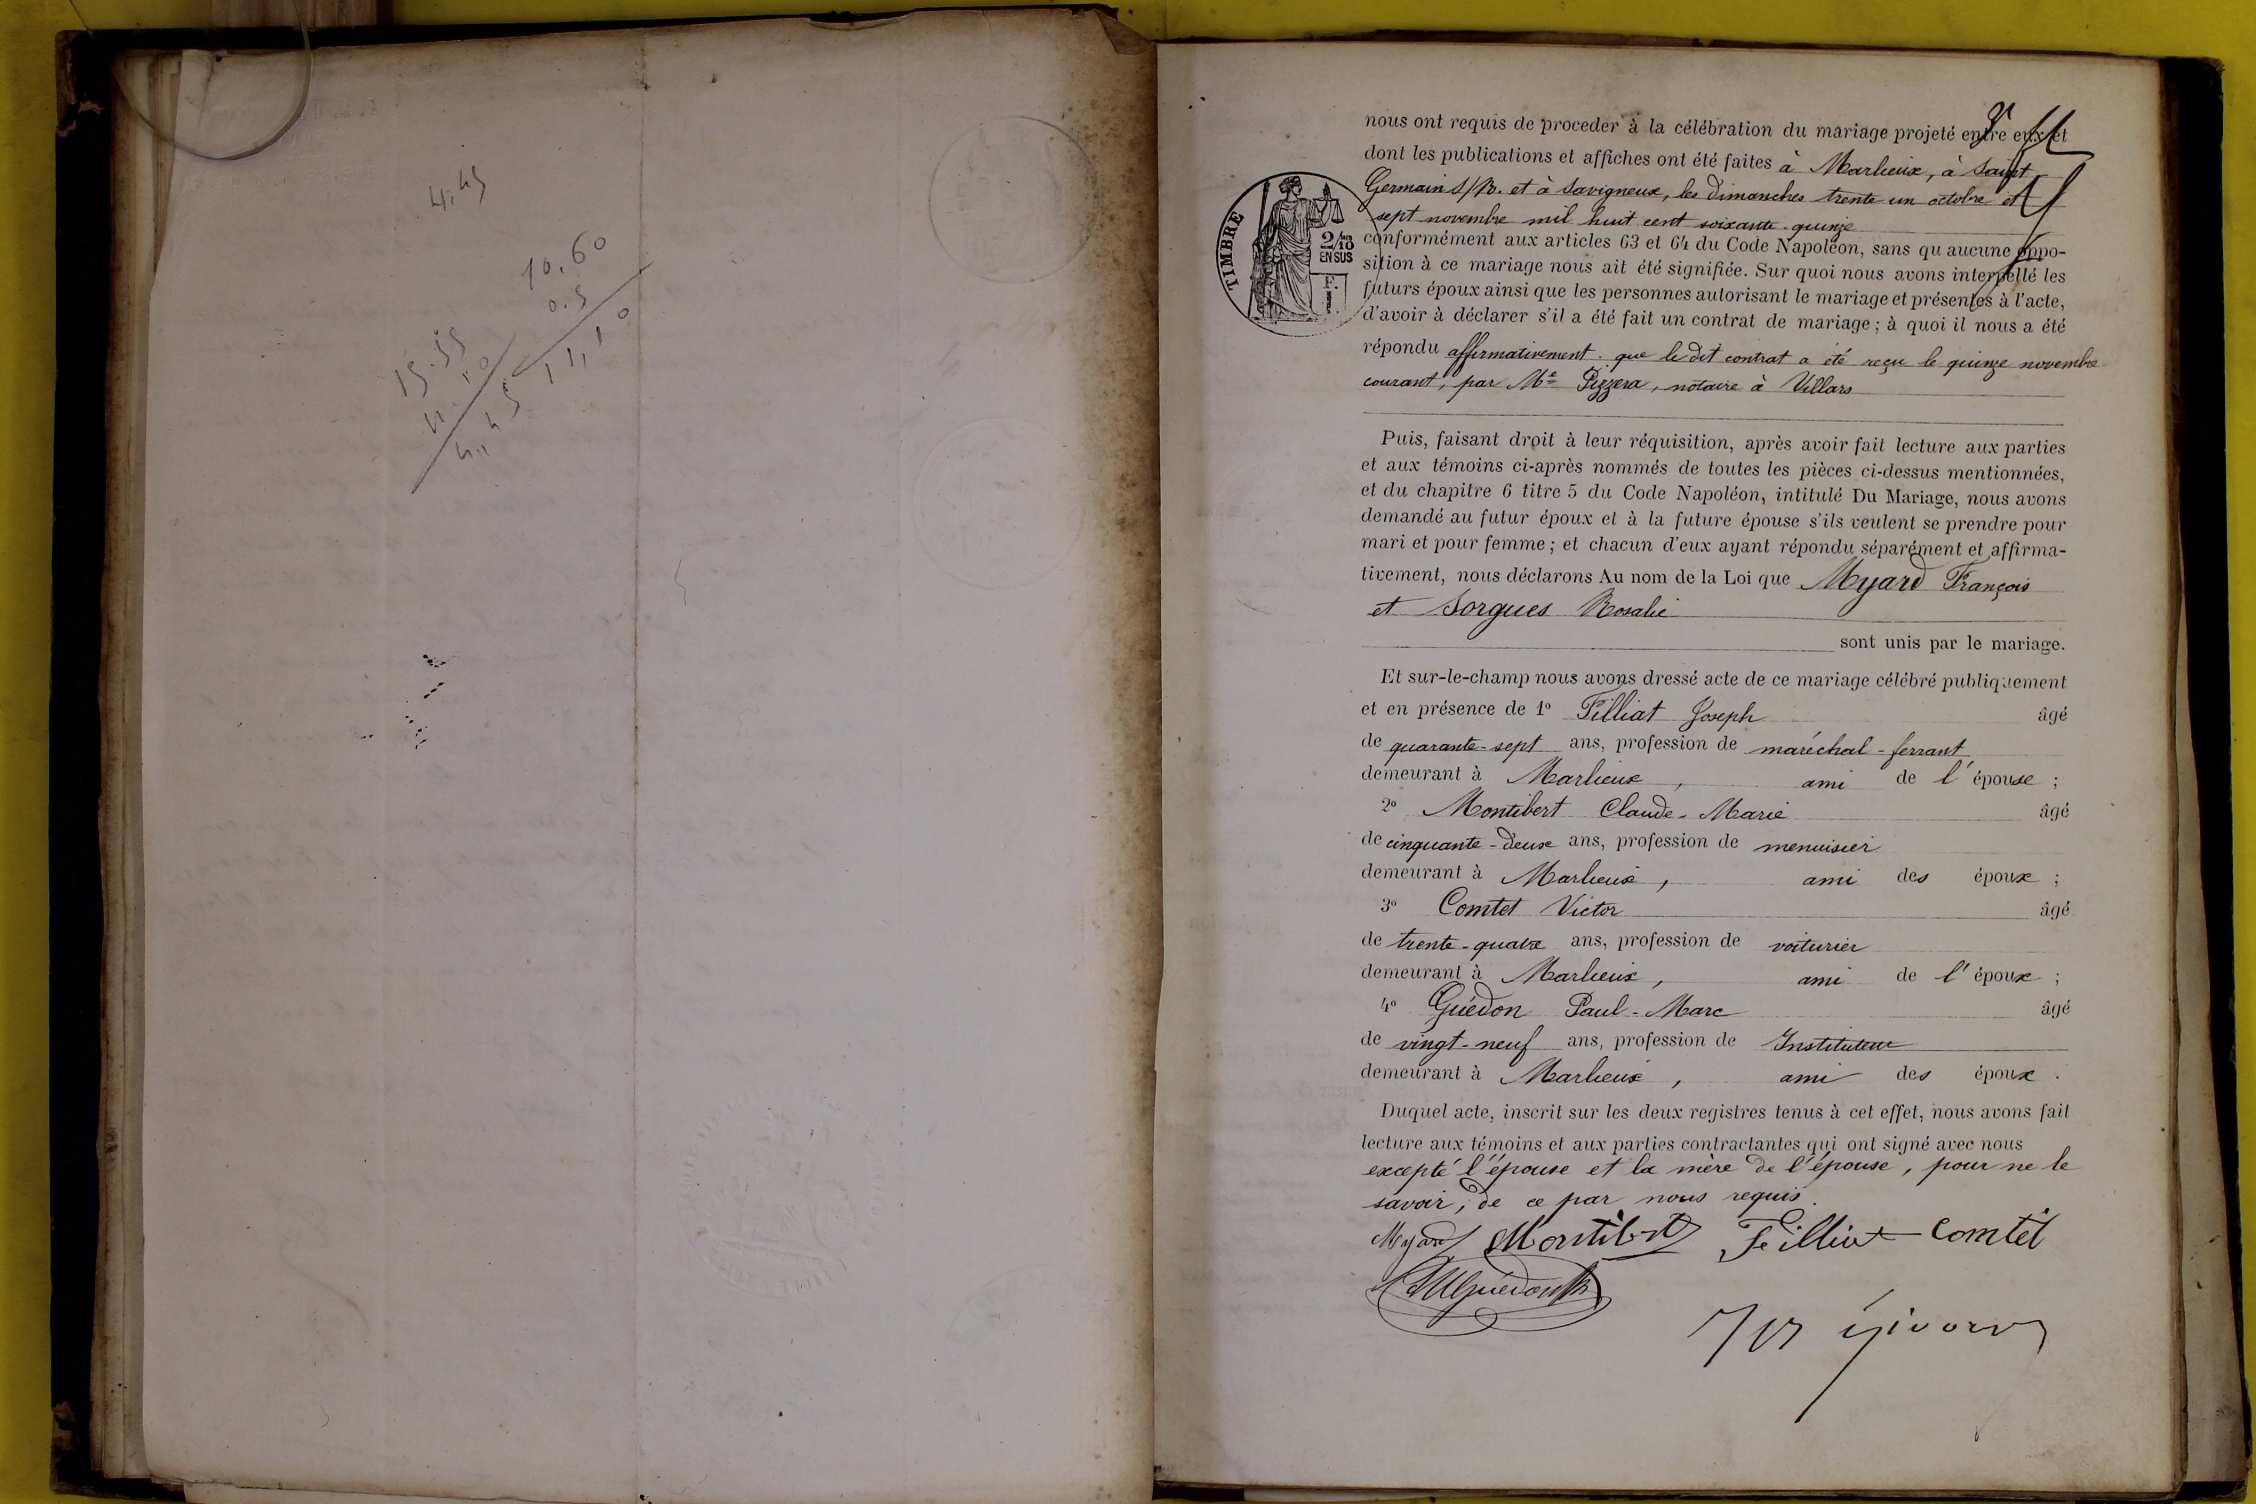 4.45
10.60
0.5
11,10
15.55
11.10
4,45
nous ont requis de proceder à la célébration du mariage projeté entre eux et
dont les publications et affiches ont été faites à Marlieux, à Saint
Germain s/R. et à Savigneux, les dimanches trente un octobre et
sept novembre mil huit cent soixante-quinze
TIMBRE
2/10 EN SUS
conformément aux articles 63 et 64 du Code Napoléon, sans qu aucune oppo-
sition à ce mariage nous ait été signifiée. Sur quoi nous avons interpellé les
futurs époux ainsi que les personnes autorisant le mariage et présentes à l'acte,
d'avoir à déclarer s'il a été fait un contrat de mariage ; à quoi il nous a été
répondu affirmativement. que le dit contrat a été reçu le quinze novembre
courant, par Me Pizzera, notaire à Villars
Puis, faisant droit à leur réquisition, après avoir fait lecture aux parties
et aux témoins ci-après nommés de toutes les pièces ci-dessus mentionnées,
et du chapitre 6 titre 5 du Code Napoléon, intitulé Du Mariage, nous avons
demandé au futur époux et à la future épouse s'ils veulent se prendre pour
mari et pour femme ; et chacun d'eux ayant répondu séparément et affirma-
tivement, nous déclarons Au nom de la Loi que Myard François
et Sorgues Rosalie
sont unis par le mariage.
Et sur-le-champ nous avons dressé acte de ce mariage célébré publiquement
et en présence de 1° Filliat Joseph âgé
de quarante-sept ans, profession de maréchal-ferrant
demeurant à Marlieux, ami de l'épouse ;
2° Montibert Claude-Marie âgé
de cinquante-deux ans, profession de menuisier
demeurant à Marlieux, ami des époux ;
3° Comtet Victor âgé
de trente-quatre ans, profession de voiturier
demeurant à Marlieux, ami de l'époux ;
4° Guédon Paul-Marc âgé
de vingt-neuf ans, profession de Instituteur
demeurant à Marlieux, ami des époux.
Duquel acte, inscrit sur les deux registres tenus à cet effet, nous avons fait
lecture aux témoins et aux parties contractantes qui ont signé avec nous
excepté l'épouse et la mère de l'épouse, pour ne le
savoir, de ce par nous requis.
Myard Montibert Filliat Comtet
Guédon